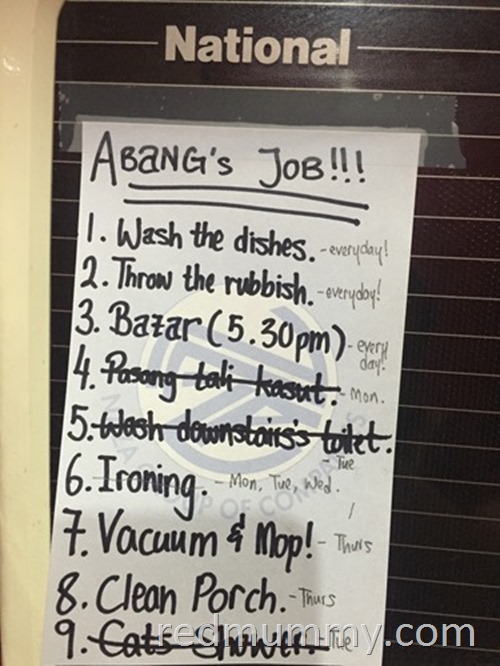 National
ABANG'S JOB!!!
1. Wash the dishes. - everyday!
2. Throw the rubbish. - everyday!
3. Bazar (5.30pm) - every
day!
4. Pasang tali kasut. - Mon.
5. Wash downstairs's toilet.
- Tue
6. Ironing. - Mon, Tue, Wed.
7. Vacuum & Mop! - Thurs
8. Clean Porch. - Thurs
9. Cats Shower. - Tue
redmummy.com